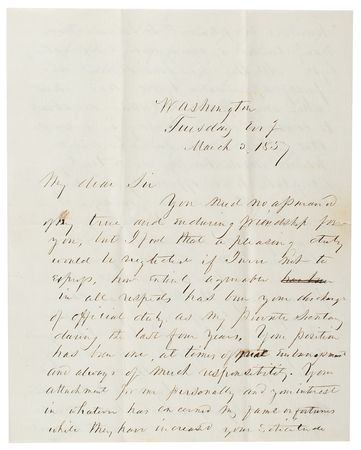 Washington
Tuesday Evg
March 3, 1857
My dear Sir
You need no assurance
of my true and enduring friendship for
you, but I feel that a pleasing duty
would be neglected if I were not to
express, how entirely agreeable
in all respects has been your discharge
of official duty as my private Secretary
during the last four years. Your position
has been one, at times of great embarrassment
and always of much responsibility. Your
attachment for me personally and your interest
in whatever has concerned my fame or fortunes
while they have increased your solicitude